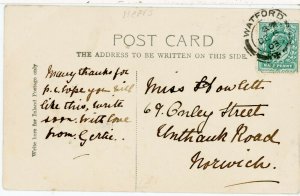 HERTS
WATFORD
POST CARD
THE ADDRESS TO BE WRITTEN ON THIS SIDE.
Write here for Inland Postage only
Many thanks for
p.c. hope you will
like this, write
soon. With love
from Gertie.
Miss Howlett
69. Onley Street
Unthank Road
Norwich.